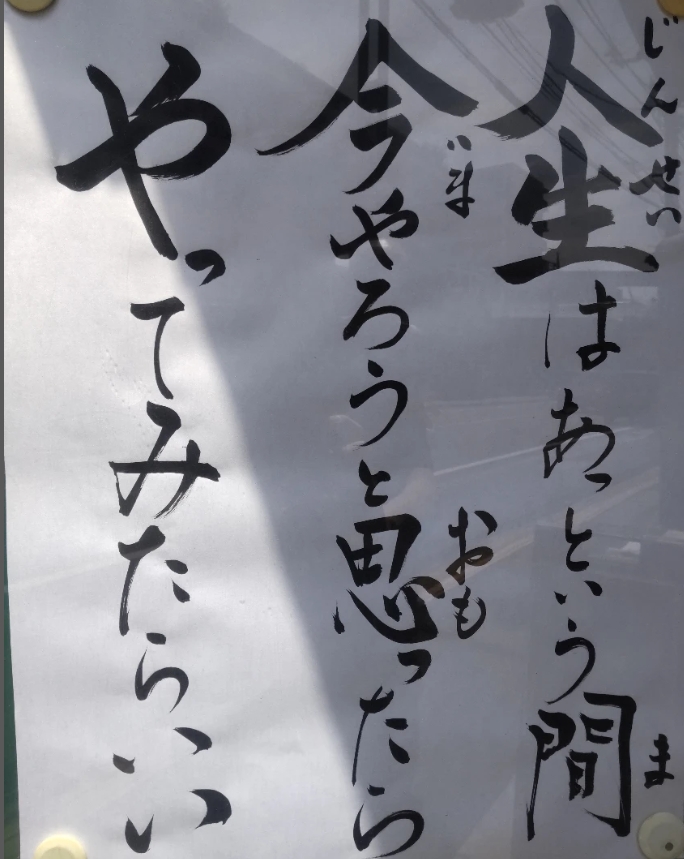 人生はあっという間
じんせい
ま
今やろうと思ったら
いま
おも
やってみたらいい